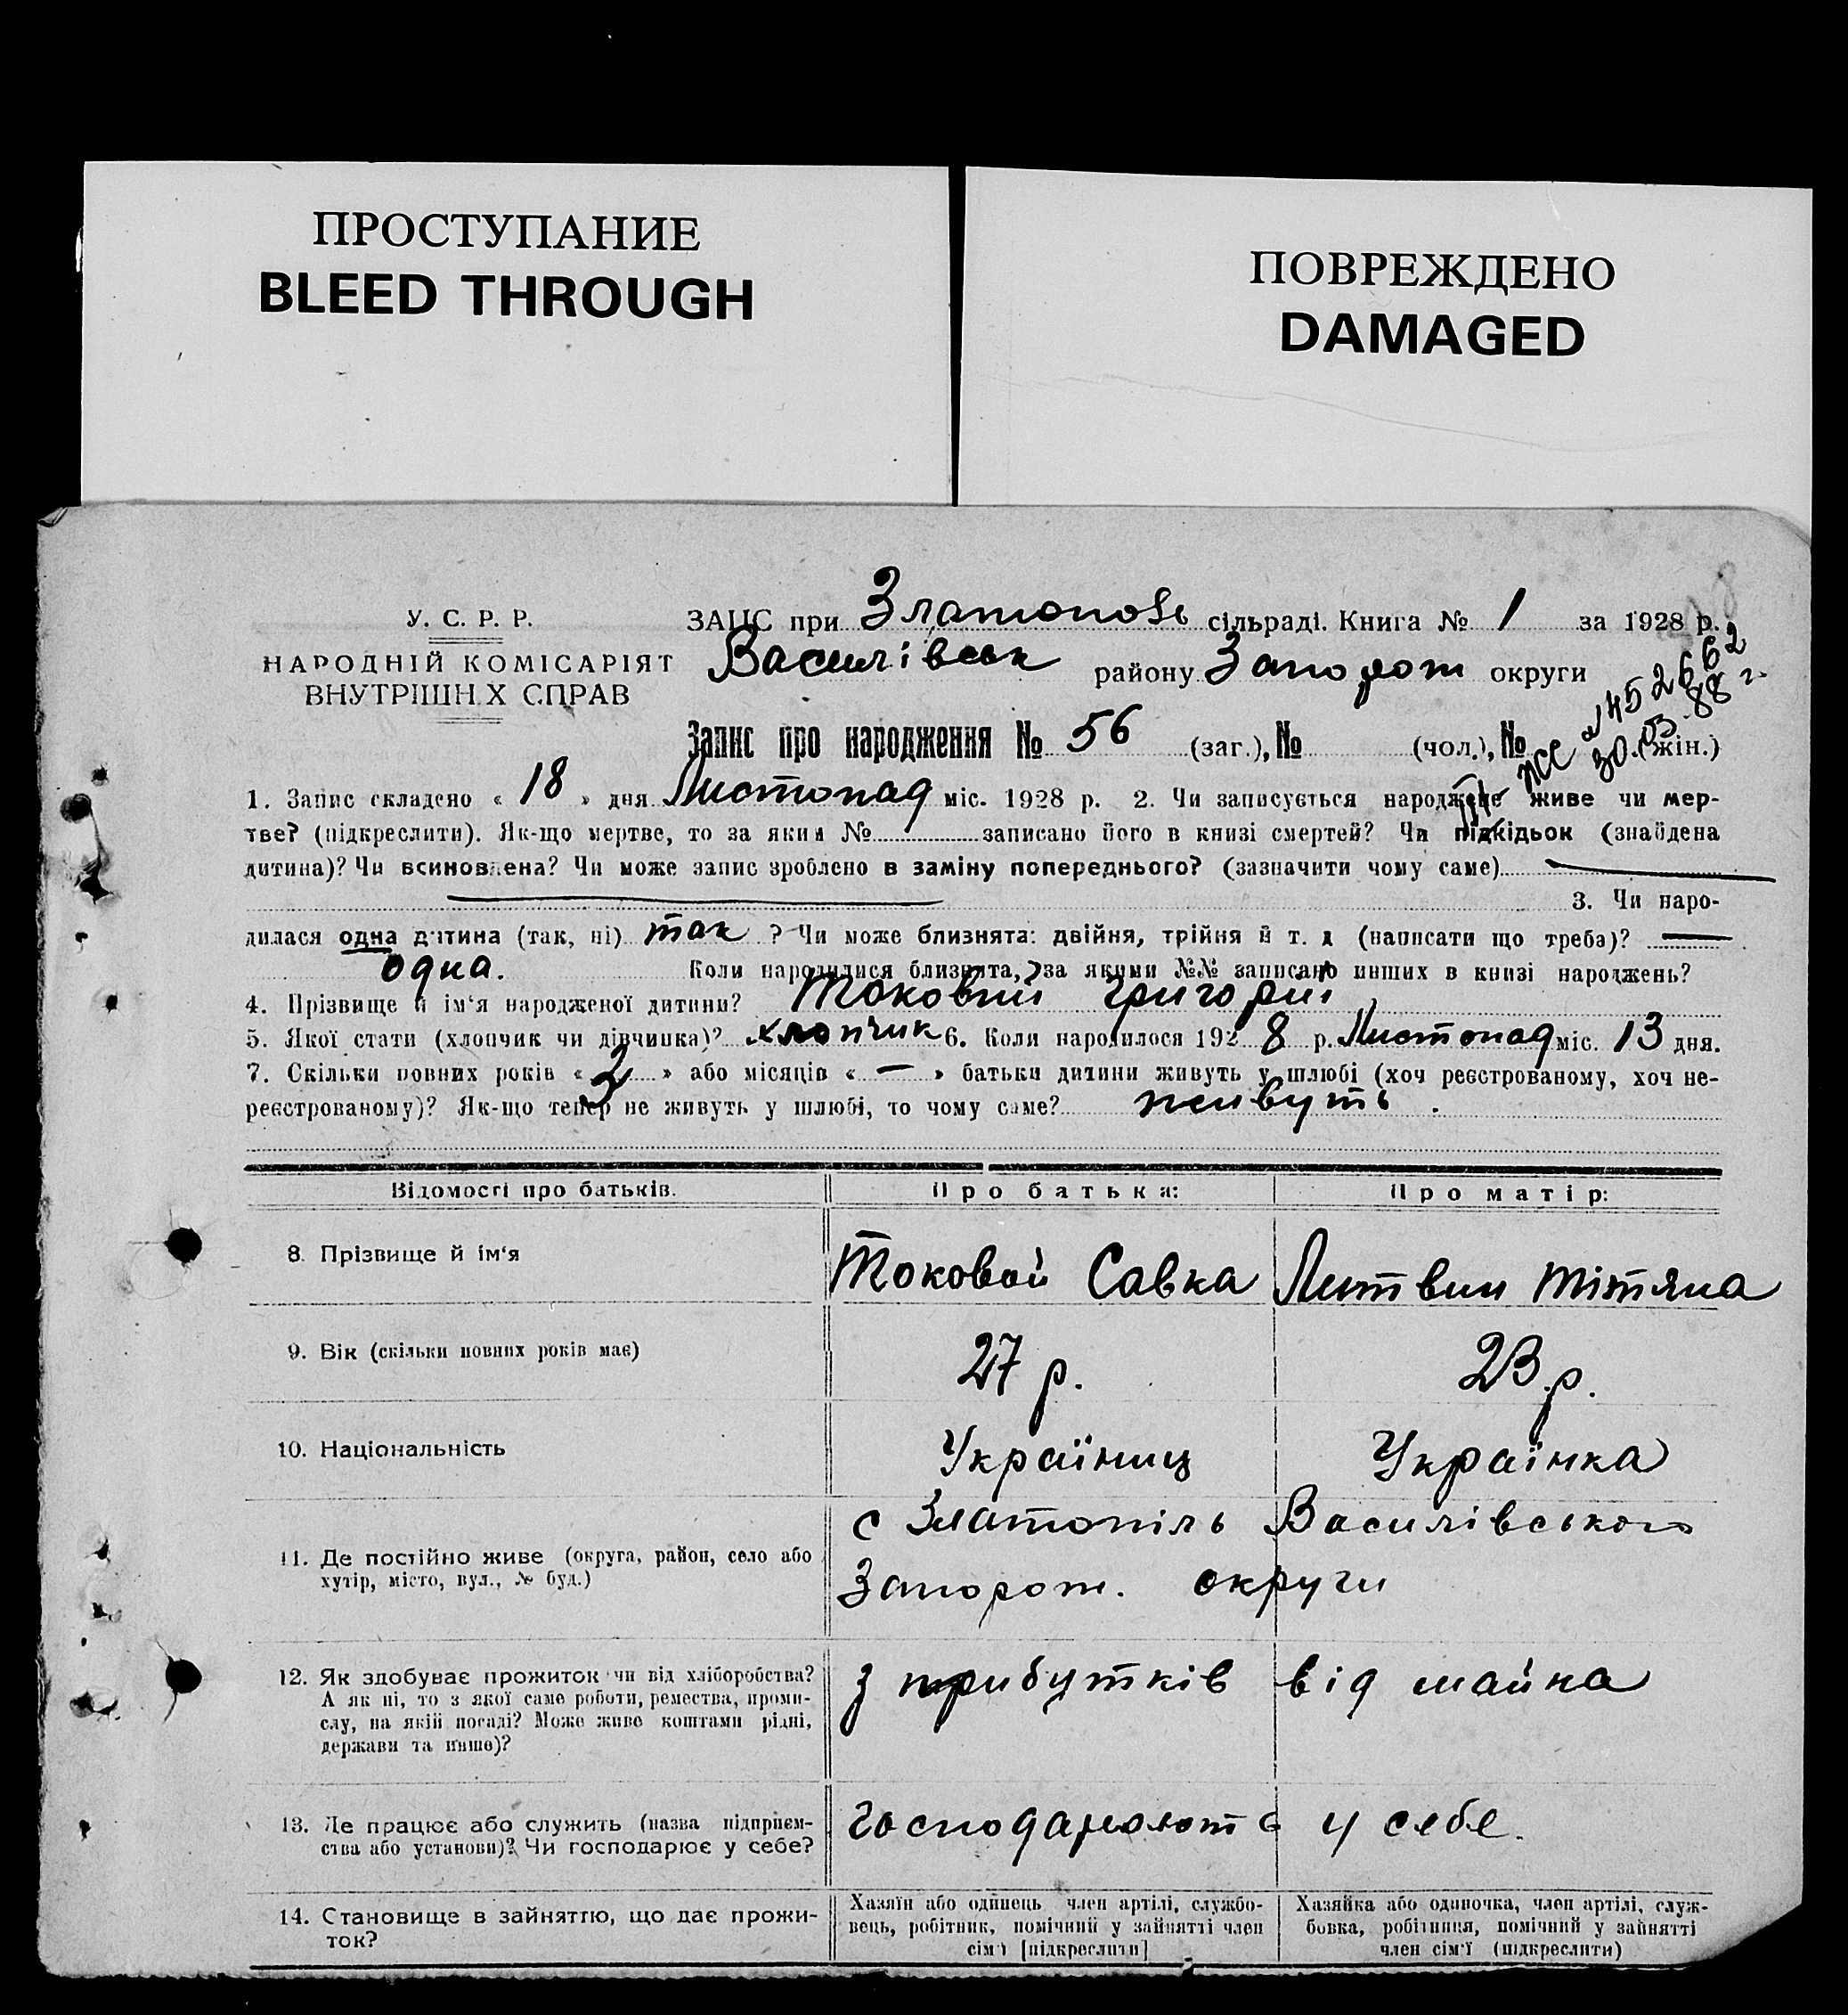 ПРОСТУПАНИЕ
BLEED THROUGH
ПОВРЕЖДЕНО
DAMAGED
У. С. Р. Р.
НАРОДНІЙ КОМІСАРІЯТ
ВНУТРІШНІХ СПРАВ
ЗАПС при Златопові сільраді. Книга № 1 за 1928 р.
Василівськ району Запорож округи
Запис про народження № 56 (заг.), № (чол.), № (жін.)
30.03.88 г.
1. Запис складено « 18 » дня Листопад міс. 1928 р. 2. Чи записується народжене живе чи мер-
тве? (підкреслити). Як-що мертве, то за яким № записано його в книзі смертей? Чи підкідьок (знайдена
дитина)? Чи всиновлена? Чи може запис зроблено в заміну попереднього? (зазначити чому саме)
3. Чи наро-
дилася одна дитина (так, ні) так ? Чи може близнята: двійня, трійня й т. д (написати що треба)? —
одна. Коли народилися близнята, за якими №№ записано инших в книзі народжень?
4. Прізвище й ім‘я народженої дитини? Токовий Григорій
5. Якої стати (хлопчик чи дівчинка)? хлопчик 6. Коли народилося 192 8 р. Листопад міс. 13 дня.
7. Скільки повних років « 2 » або місяців « — » батьки дитини живуть у шлюбі (хоч реєстрованому, хоч не-
реєстрованому)? Як-що тепер не живуть у шлюбі, то чому саме? живуть .
Відомості про батьків. Про батька: Про матір:
8. Прізвище й ім‘я Токовой Савка Литвин Тітяна
9. Вік (скільки повних років має) 27 р. 23 р.
10. Національність Україниц Українка
11. Де постійно живе (округа, район, село або
хутір, місто, вул., № буд.)
с Златопіль Василівського
Запорож. округи
12. Як здобуває прожиток чи від хліборобства?
А як ні, то з якої саме роботи, ремества, проми-
слу, на якій посаді? Може живе коштами рідні,
держави та инше)?
з прибутків від майна
13. Де працює або служить (назва підприєм-
ства або установи)? Чи господарює у себе?
господарюють у себе.
14. Становище в зайняттю, що дає прожи-
ток?
Хазяїн або одинець член артілі, службо-
вець, робітник, помічний у зайнятті член
сім‘ї [підкреслити]
Хазяйка або одиночка, член артілі, служ-
бовка, робітниця, помічний у зайнятті
член сім‘ї (підкреслити)